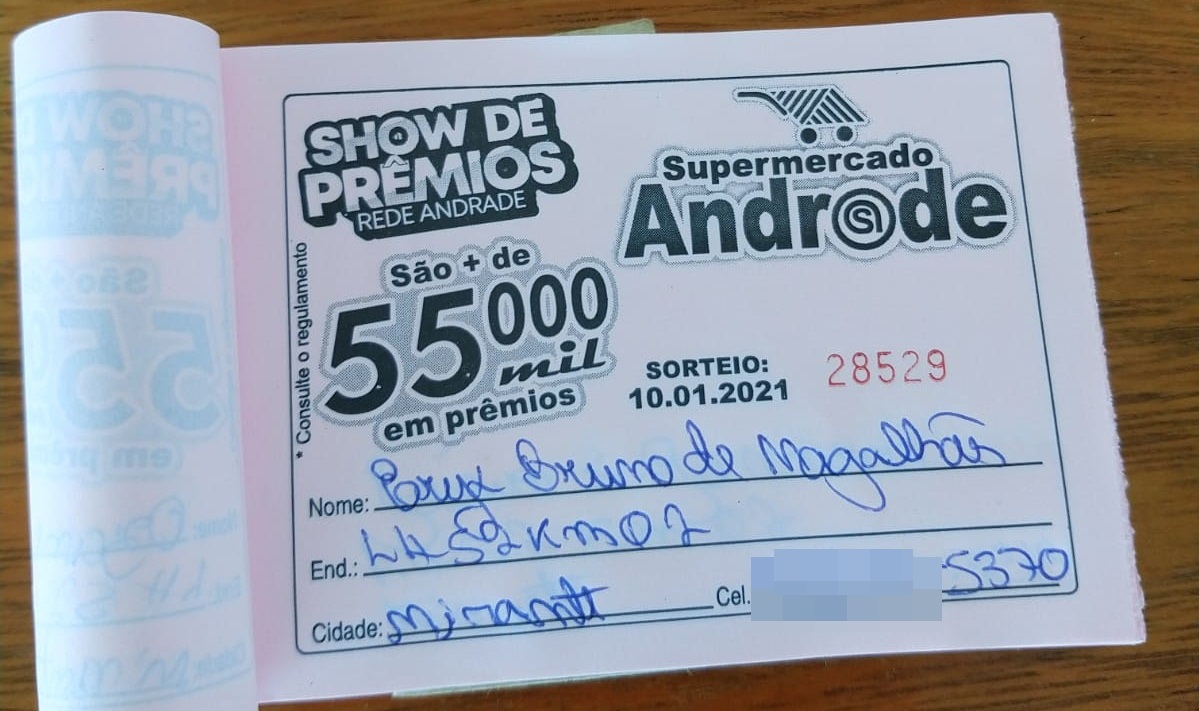 SHOW DE
PRÊMIOS
REDE ANDRADE
Supermercado
Andrade
São + de
55000
mil
em prêmios
* Consulte o regulamento
SORTEIO:
10.01.2021
28529
Nome: Bruno de Magalhãis
End.: LH 52 Km 02
Cidade: Mirantt Cel. 5370